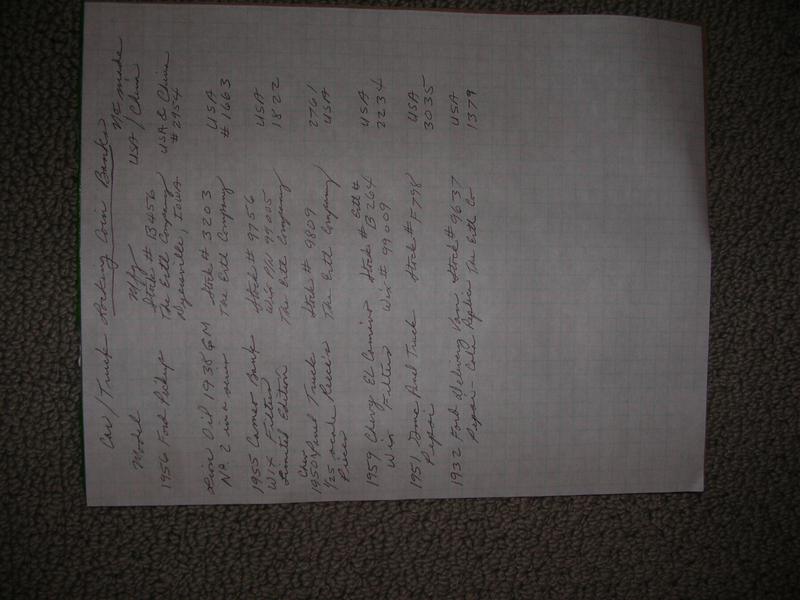 Car/Truck Locking Coin Banks
Model Mfg No. made
USA/China
1956 Ford Pickup Stock # B456 USA & China
The Ertl Company # 2954
Dyersville, IOWA
Lion Oil 1938 GM Stock # 3203 USA
No. 2 in a series The Ertl Company # 1663
1955 Cameo Bank Stock # 9756 USA
Wix Filters Wix P/N 99005 1822
Limited Edition The Ertl Company
Chev
1950 Panel Truck Stock # 9809 2761
1/25 scale The Ertl Company USA
1959 Chevy El Camino Stock # Ertl # B264 USA
Wix Filters Wix # 99009 2234
1951 Panel Truck Stock # F798 USA
Pepsi 3035
1932 Ford Delivery Van Stock # 9637 USA
Pepsi-Cola Replica The Ertl Co 1379